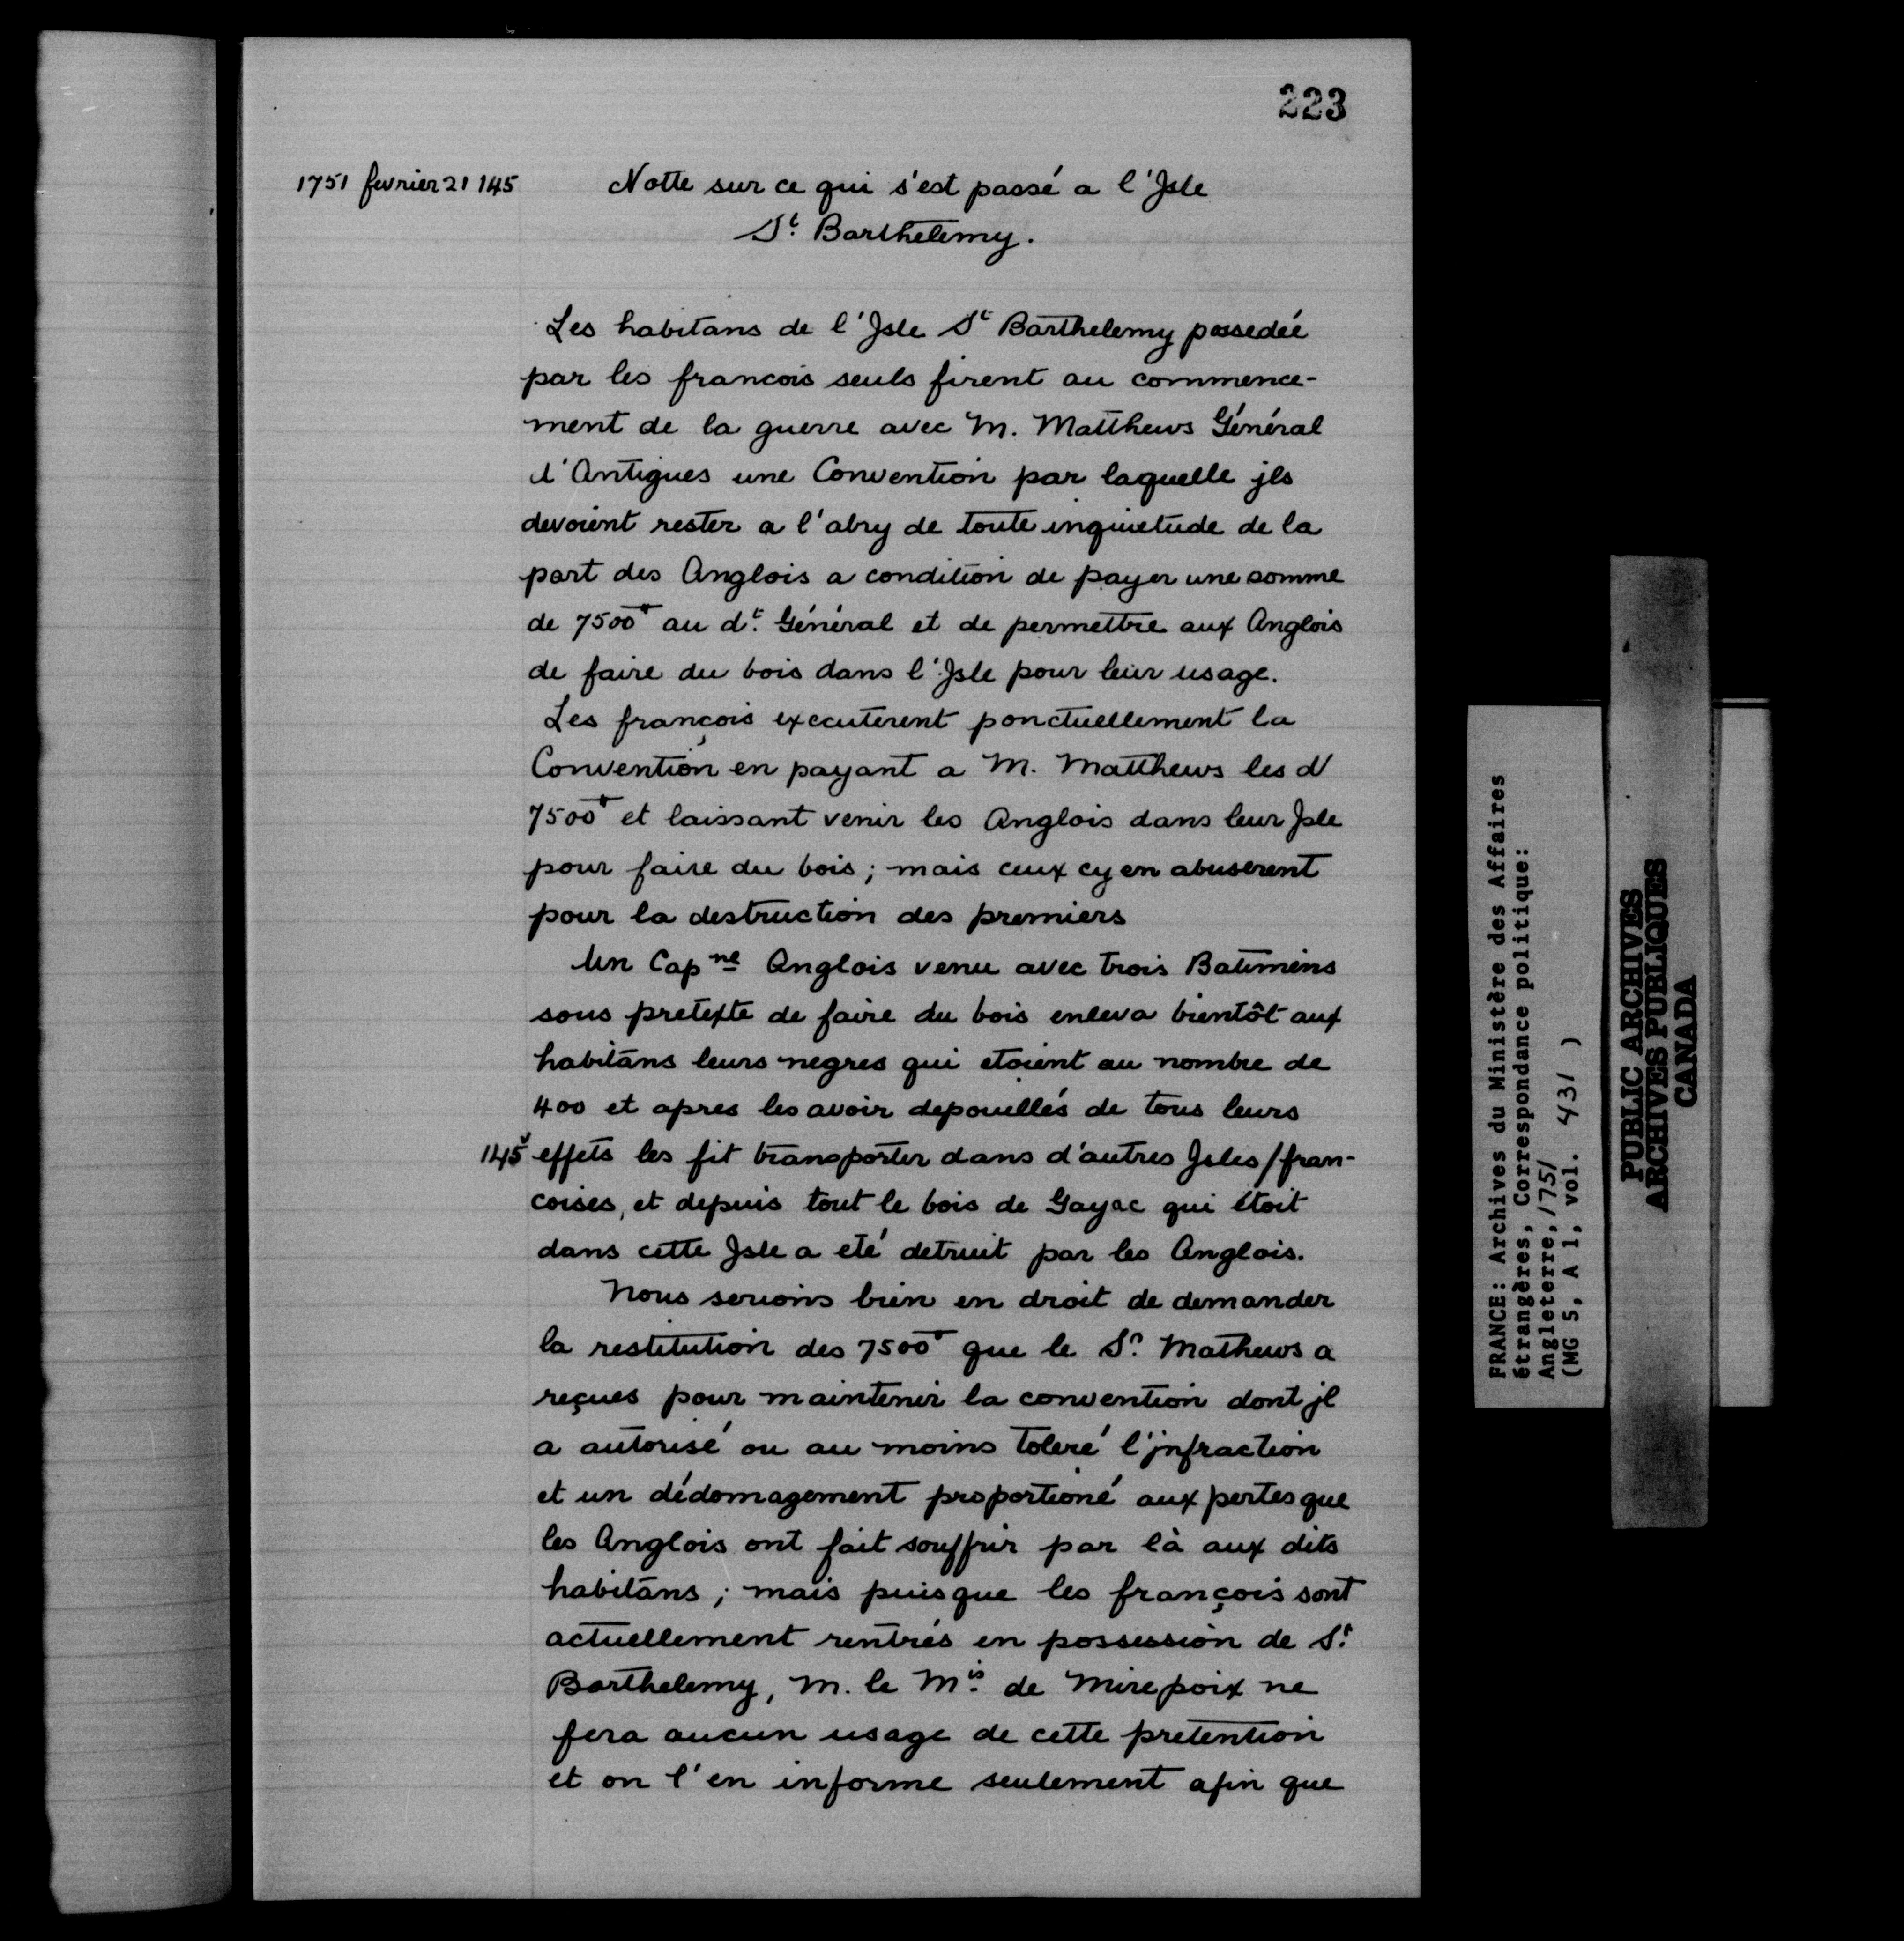 223
1751 fevrier 21 145
Notte sur ce qui s'est passé a l'Jsle
St. Barthelemy.
Les habitans de l'Jsle St Barthelemy possedée
par les francois seuls firent au commence-
ment de la guerre avec M. Matthews Général
d'Antigues une Convention par laquelle jls
devoient rester a l'abry de toute inquietude de la
part des Anglois a condition de payer une somme
de 7500# au dt. Général et de permettre aux Anglois
de faire du bois dans l'Jsle pour leur usage.
Les françois executerent ponctuellement la
Convention en payant a M. Matthews les d
7500# et laissant venir les Anglois dans leur Jsle
pour faire du bois; mais ceux cy en abuserent
pour la destruction des premiers
Un Capne Anglois venu avec trois Batimens
sous pretexte de faire du bois enleva bientôt aux
habitans leurs negres qui etoient au nombre de
400 et apres les avoir depouellés de tous leurs
145v effets les fit transporter dans d'autres Jsles/fran-
coises, et depuis tout le bois de Gayac qui étoit
dans cette Jsle a eté detruit par les Anglois.
Nous serions bien en droit de demander
la restitution des 7500# que le Sr. Mathews a
reçues pour maintenir la convention dont jl
a autorisé ou au moins toleré l'jnfraction
et un dédomagement proportioné aux pertes que
les Anglois ont fait souffrir par là aux dits
habitans; mais puisque les françois sont
actuellement rentrés en possession de St.
Barthelemy, M. le Mis. de Mirepoix ne
fera aucun usage de cette pretention
et on l'en informe seulement afin que
FRANCE: Archives du Ministère des Affaires
étrangères, Correspondance politique:
Angleterre, 1751
(MG 5, A 1, vol. 431 )
PUBLIC ARCHIVES
ARCHIVES PUBLIQUES
CANADA